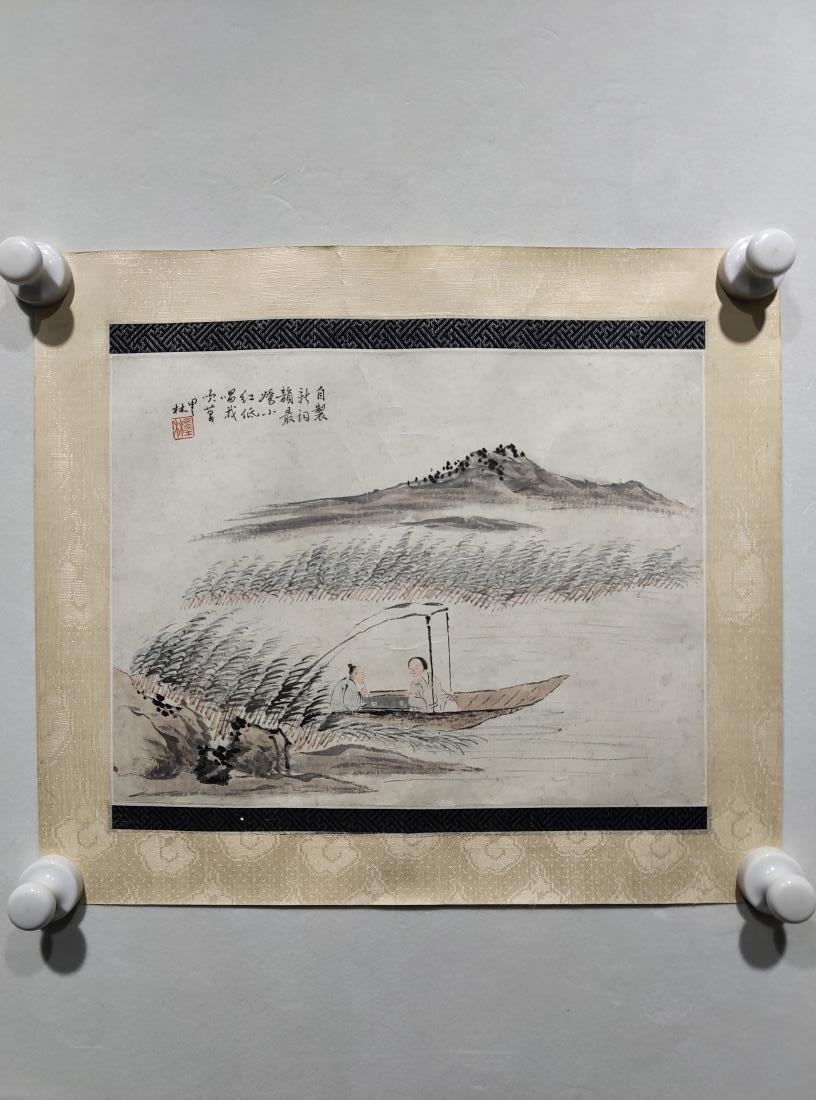 自製
新詞
韻最
嬌小
紅低
唱我
吹簫
林